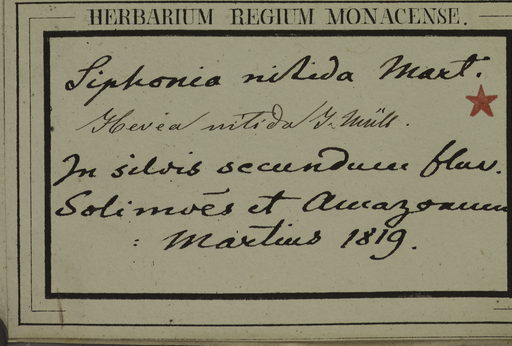 HERBARIUM REGIUM MONACENSE.
Siphonia nitida Mart.
Hevea nitida J. Müll.
In silvis secundum fluv.
Solimoës et Amazonum
: Martius 1819.